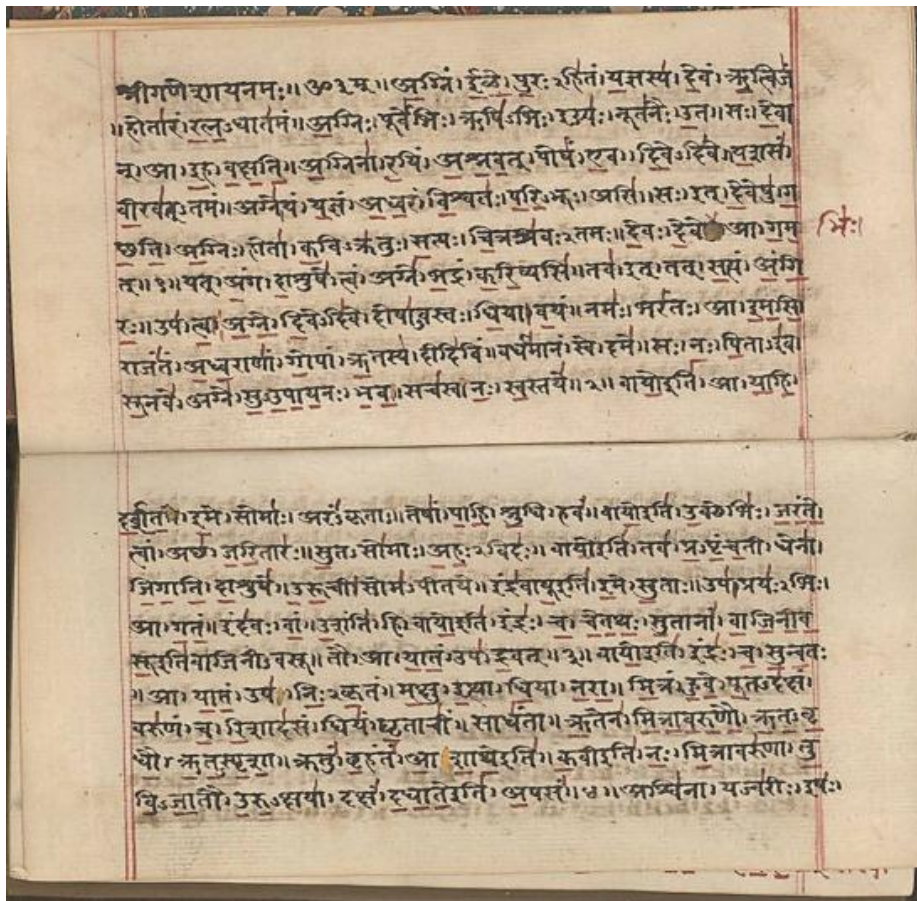 श्रीगणेशायनमः॥ॐ३म्॥अग्निं। ईळे। पुरःऽहितं। यज्ञस्य। देवं। ऋत्विजं
॥होतारं। रत्नऽधातमं॥अग्निः। पूर्वेभिः। ऋषिऽभिः। ईड्यः। नूतनैः। उत। सः। देवा
न्। आ। इह। वक्षति॥अग्निना। रयिं। अश्नवत्। पोषं। एव। दिवेऽदिवे॥यशसं
वीरवत्ऽतमं॥अग्ने। यं। यज्ञं। अध्वरं। विश्वतः। परिऽभूः। असि॥सः। इत्। देवेषु। ग
च्छति। अग्निः। होता। कविऽक्रतुः। सत्यः। चित्रश्रवःऽतमः॥देवः। देवे आ। गम
भिः।
त्॥१॥यत्। अंग। दाशुषे। त्वं। अग्ने। भद्रं। करिष्यसि॥तव। इत्। तत्। सत्यं। अंगि
रः॥उप। त्वा। अग्ने। दिवेऽदिवे। दोषाऽवस्तः। धिया। वयं॥नमः। भरंतः। आ। इमसि
राजंतं। अध्वराणां। गोपां। ऋतस्य। दीदिविं॥वर्धमानं। स्वे। दमे॥सः। नः। पिताऽइव।
सूनवे। अग्ने। सुऽउपायनः। भव॥सचस्व। नः। स्वस्तये॥२॥ वायोइति। आ। याहि।
दर्शत। इमे। सोमाः। अरंऽकृताः॥तेषां। पाहि। श्रुधि। हवं॥वायोइति। उक्थेभिः। जरंते।
त्वां। अच्छ। जरितारः॥सुतऽसोमाः। अहःऽविदः॥ वायोइति। तव। प्रऽपृंचती। धेना।
जिगाति। दाशुषे॥उरूची। सोमऽपीतये॥इंद्रवायूइति। इमे। सुताः॥उप। प्रयःऽभिः।
आ। गतं॥इंदवः। वां। उशंति। हि। वायोइति। इंद्रः। च। चेतथः। सुतानां। वाजिनीव
सूइतिवाजिनीऽवसू॥तौ। आ। यातं। उप। द्रवत्॥३॥ वायोइति। इंद्रः। च। सुन्वतः
॥आ। यातं। उप। निःऽकृतं॥मक्षु। इत्था। धिया। नरा॥मित्रं। हुवे। पूतऽदक्षं।
वरुणं। च। रिशादसं। धियं। घृताचीं॥साधंता॥ऋतेन। मित्रावरुणौ। ऋतऽवृ
धौ। ऋतऽस्पृशा॥क्रतुं। बृहंतं। आशाथेइति॥कवीइति। नः। मित्रावरुणा। तु
विऽजातौ। उरुऽक्षया। दक्षं। दधातेइति। अपसं॥४॥अश्विना। यज्वरीः। इषः।